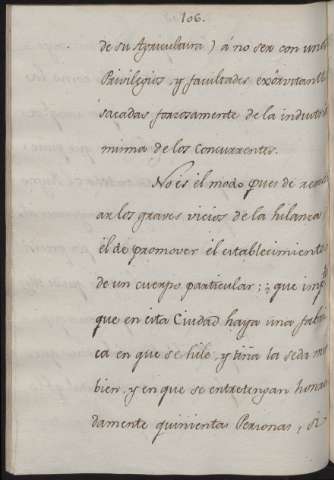 106.
de su Agricultura) á no ser con unos
Privilegios, y facultades exôrvitantes
sacadas forzosamente de la industria
misma de los concurrentes.
No es el modo pues de remedi
ar los graves vicios de la hilanza
él de promover él establecimiento
de un cuerpo particular: ¿que imp
que en esta Ciudad haya una fabri
ca en que se hile, y tiña la seda mui
bien, y en que se entretengan honra
damente quinientas Personas, si